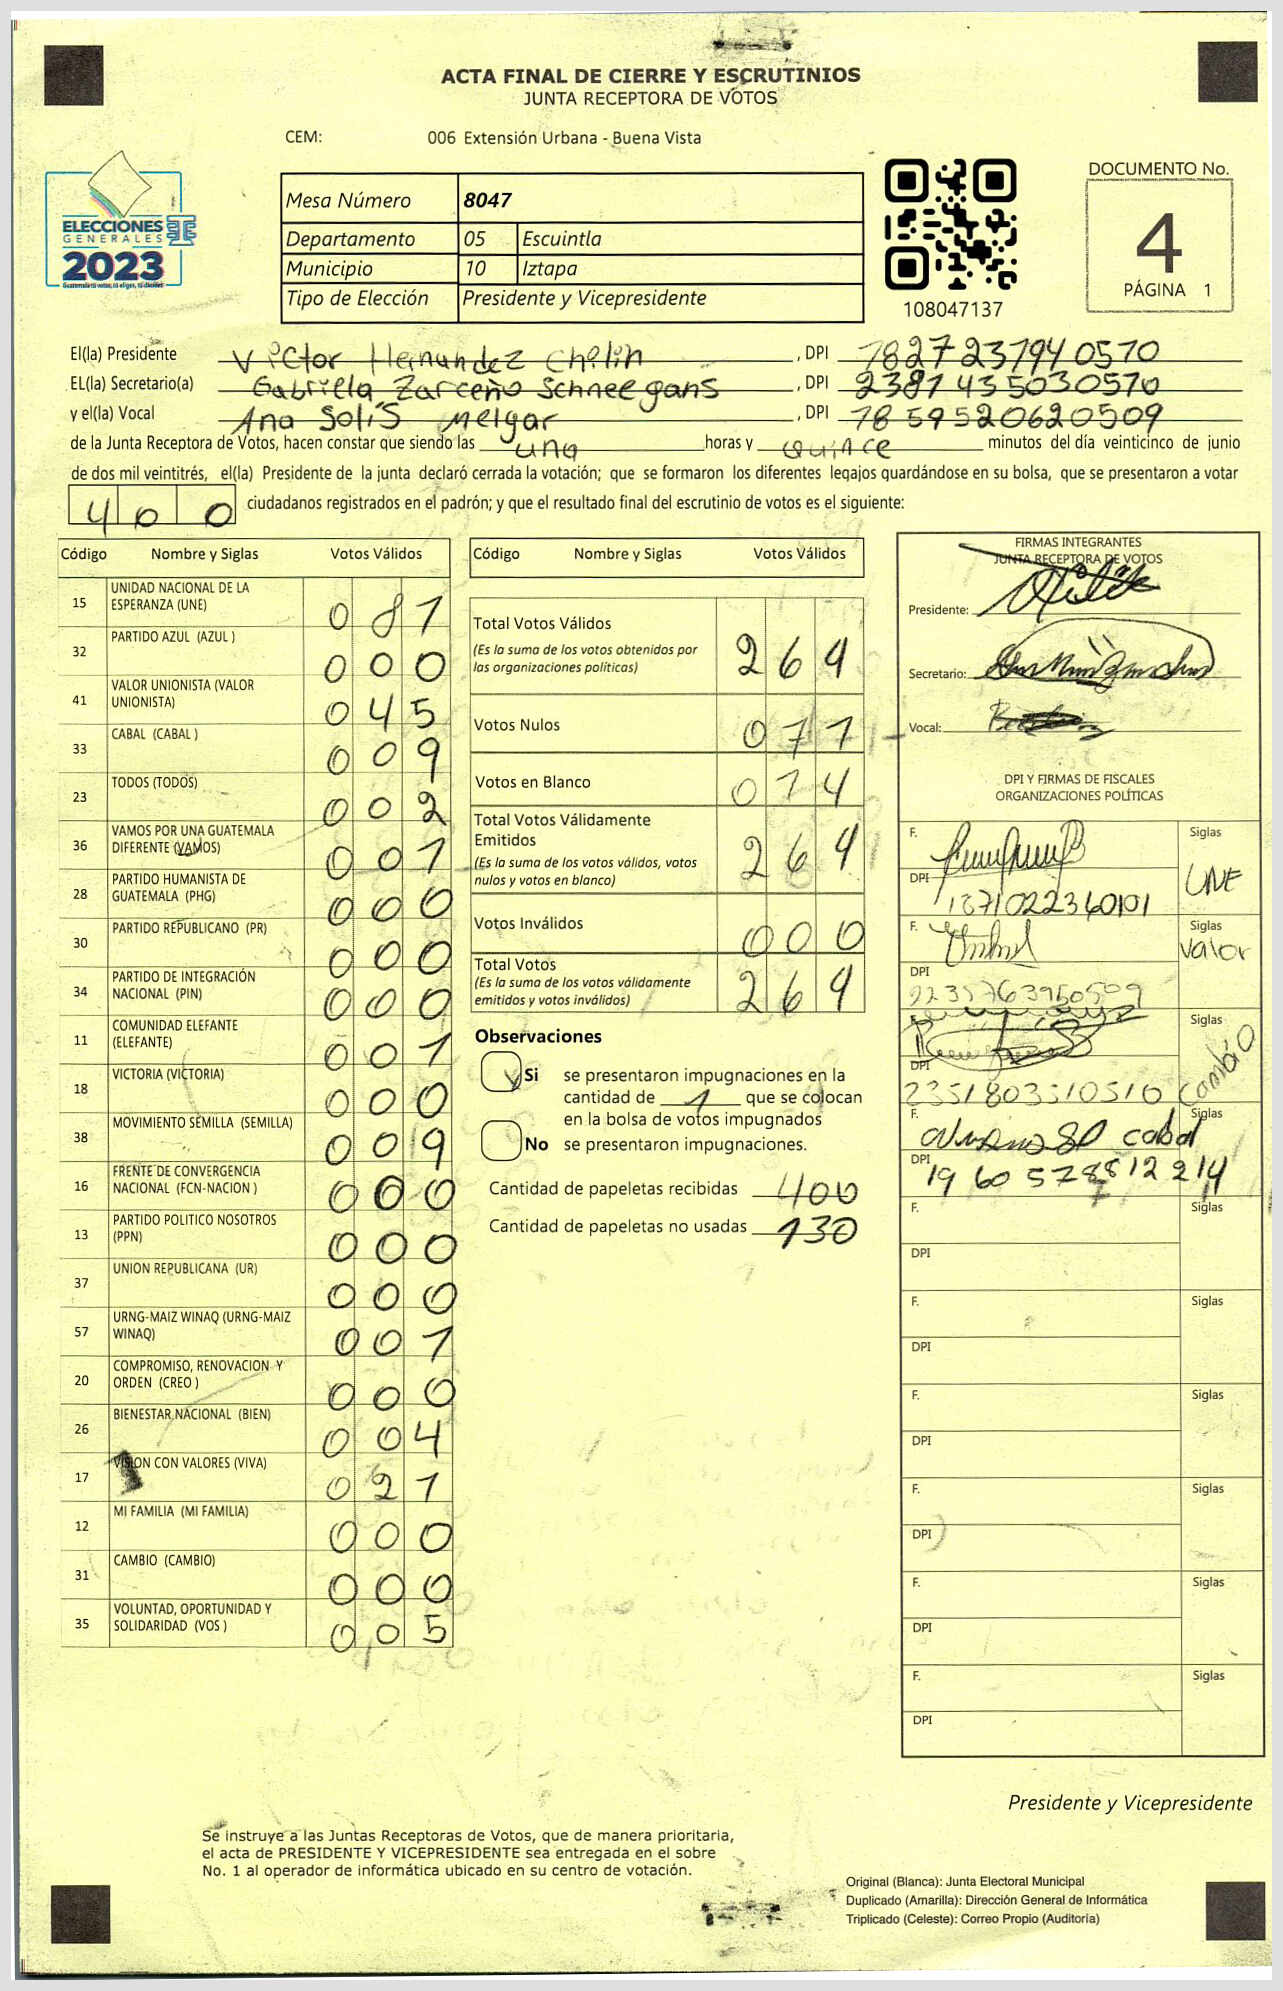 ACTA FINAL DE CIERRE Y ESCRUTINIOS
JUNTA RECEPTORA DE VOTOS
CEM: 006 Extensión Urbana - Buena Vista
ELECCIONES
GENERALES
2023
Mesa Número 8047
Departamento 05 Escuintla
Municipio 10 Iztapa
Tipo de Elección Presidente y Vicepresidente
108047137
DOCUMENTO No.
4
PÁGINA 1
El(la) Presidente Victor Hernandez Chilin , DPI 1827237940570
EL(la) Secretario(a) Gabriella Zarceño Schneegans , DPI 2381435030570
y el(la) Vocal Ana Solis Melgar , DPI 1859520620509
de la Junta Receptora de Votos, hacen constar que siendo las una horas y quince minutos del día veinticinco de junio
de dos mil veintitrés, el(la) Presidente de la junta declaró cerrada la votación; que se formaron los diferentes legajos guardándose en su bolsa, que se presentaron a votar
400 ciudadanos registrados en el padrón; y que el resultado final del escrutinio de votos es el siguiente:
Código Nombre y Siglas Votos Válidos
15 UNIDAD NACIONAL DE LA ESPERANZA (UNE) 081
32 PARTIDO AZUL (AZUL ) 000
41 VALOR UNIONISTA (VALOR UNIONISTA) 045
33 CABAL (CABAL ) 009
23 TODOS (TODOS) 002
36 VAMOS POR UNA GUATEMALA DIFERENTE (VAMOS) 001
28 PARTIDO HUMANISTA DE GUATEMALA (PHG) 000
30 PARTIDO REPUBLICANO (PR) 000
34 PARTIDO DE INTEGRACIÓN NACIONAL (PIN) 000
11 COMUNIDAD ELEFANTE (ELEFANTE) 001
18 VICTORIA (VICTORIA) 000
38 MOVIMIENTO SEMILLA (SEMILLA) 009
16 FRENTE DE CONVERGENCIA NACIONAL (FCN-NACION ) 000
13 PARTIDO POLITICO NOSOTROS (PPN) 000
37 UNION REPUBLICANA (UR) 000
57 URNG-MAIZ WINAQ (URNG-MAIZ WINAQ) 001
20 COMPROMISO, RENOVACION Y ORDEN (CREO ) 000
26 BIENESTAR NACIONAL (BIEN) 004
17 VISION CON VALORES (VIVA) 021
12 MI FAMILIA (MI FAMILIA) 000
31 CAMBIO (CAMBIO) 000
35 VOLUNTAD, OPORTUNIDAD Y SOLIDARIDAD (VOS ) 005
Código Nombre y Siglas Votos Válidos
Total Votos Válidos 269
(Es la suma de los votos obtenidos por
las organizaciones políticas)
Votos Nulos 077
Votos en Blanco 014
Total Votos Válidamente
Emitidos 269
(Es la suma de los votos válidos, votos
nulos y votos en blanco)
Votos Inválidos 000
Total Votos 269
(Es la suma de los votos válidamente
emitidos y votos inválidos)
Observaciones
Si se presentaron impugnaciones en la
cantidad de 1 que se colocan
en la bolsa de votos impugnados
No se presentaron impugnaciones.
Cantidad de papeletas recibidas 400
Cantidad de papeletas no usadas 130
FIRMAS INTEGRANTES
JUNTA RECEPTORA DE VOTOS
Presidente:
Secretario:
Vocal:
DPI Y FIRMAS DE FISCALES
ORGANIZACIONES POLÍTICAS
F. Siglas UNE
DPI 1871022360101
F. Siglas Valor
DPI 2235763950509
F. Siglas Cambio
DPI 2351803510510
F. Siglas cabal
DPI 1960578812214
F. Siglas
DPI
F. Siglas
DPI
F. Siglas
DPI
F. Siglas
DPI
F. Siglas
DPI
F. Siglas
DPI
Presidente y Vicepresidente
Se instruye a las Juntas Receptoras de Votos, que de manera prioritaria,
el acta de PRESIDENTE Y VICEPRESIDENTE sea entregada en el sobre
No. 1 al operador de informática ubicado en su centro de votación.
Original (Blanca): Junta Electoral Municipal
Duplicado (Amarilla): Dirección General de Informática
Triplicado (Celeste): Correo Propio (Auditoría)